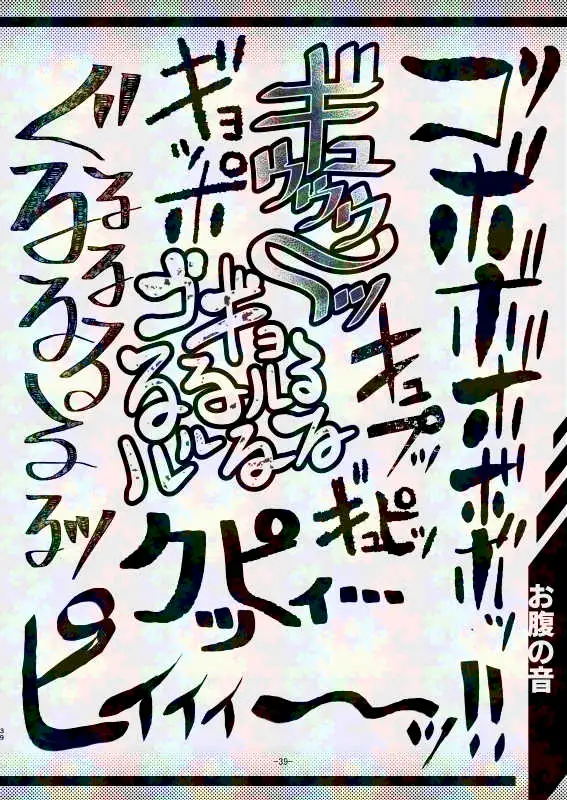 ゴボボボボボッ
ギュウウウ〜ッ
ギョポッ
ぐるるるるるるるッ
キュプッ
ゴギョるるルるルルるるる
ギュピッ
クッピィ…
ピィィィィ〜〜ッ!!
お腹の音
-39-
39